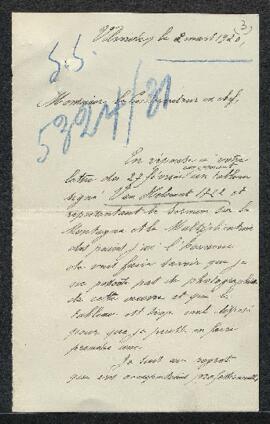 Vilvorde, le 2 mars 1920,
(3)
S.S.
5324/20
Monsieur le Conservateur en chef,
En réponse à votre
lettre du 27 février un tableau
signé Van Helmont 1722 et
représentant le Sermon sur la
Montagne et la Multiplication
des pains, j'ai l'honneur
de vous faire savoir que je
ne possède pas de photographie
de cette œuvre et que le
tableau est trop mal
pour que je puisse en faire
prendre une.
Je suis au regret
que mes occupations professionnelles